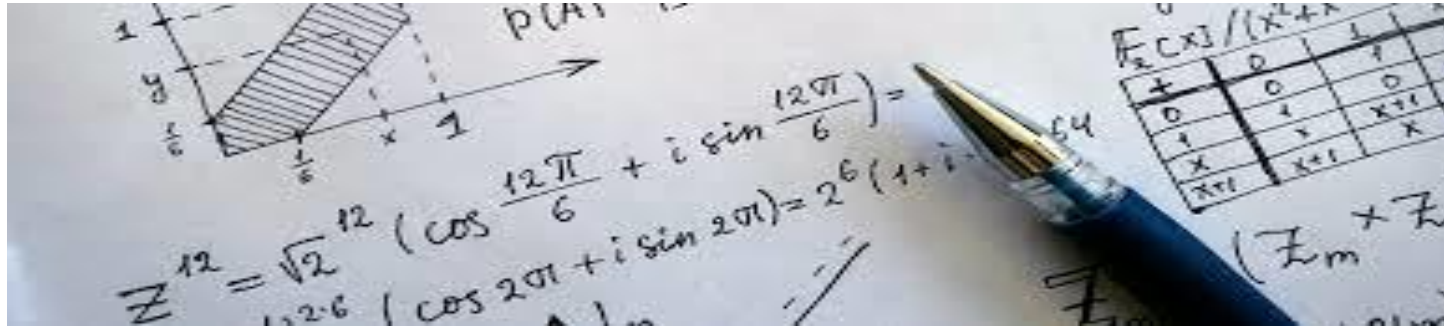 1
y
1/6
1/6
x
1
p(A)
Z^12 = √2^12 (cos 12π/6 + i sin 12π/6) =
2·6 (cos 2π + i sin 2π) = 2^6 (1 + i · 64
F_2[x]/(x^2+x
+ 0 1
0 0 1
1 1 0
x x x+1
x+1 x+1 x
(Z_m × Z
Z